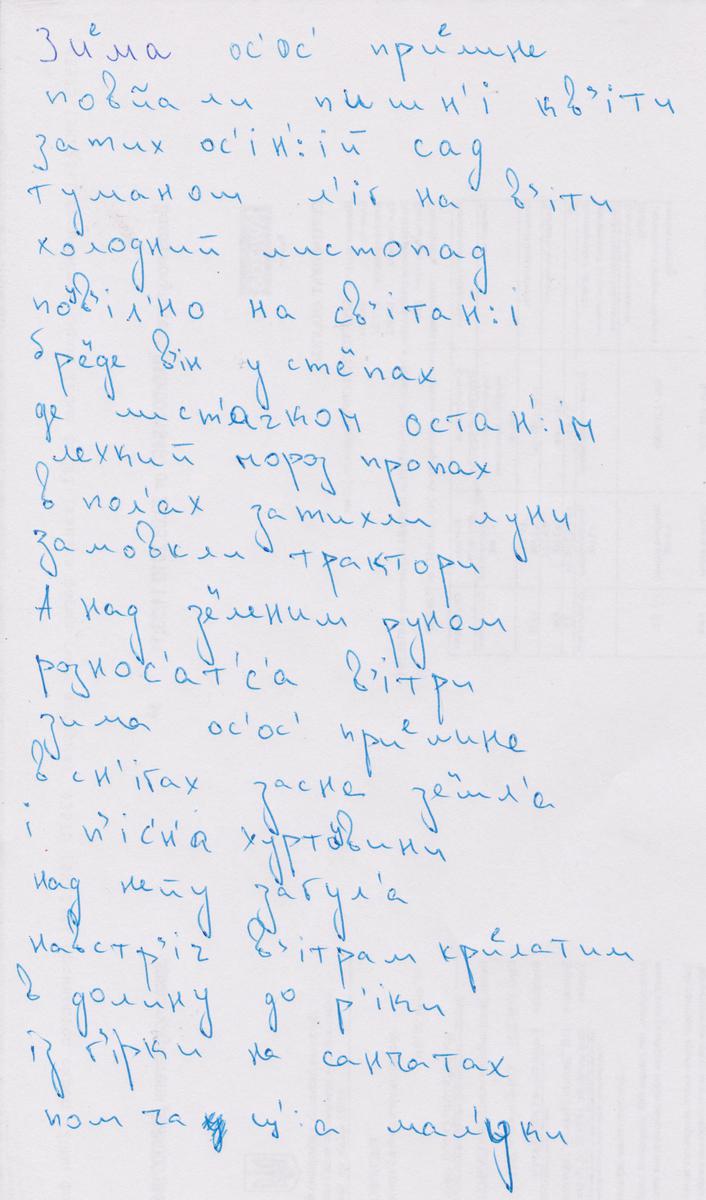 Зиᵉма ос'ос' приᵉлине
повйали пишн'і кв'іти
затих ос'ін':ій сад
туманом л'іг на в'іти
холодний листопад
поўв'іл'но на св'ітан':і
бреиде в'ін у стеипах
де лист'ачком остан':ім
лехкий мороз пропах
в пол'ах затихли луни
замовкли трактори
А над зеиленим руном
розно́с'ат'с'а в'ітри
зима ос'ос' приᵉлине
в сн'ігах засне зеимл'а
і п'іс'н'а хуртоўвини
над нейу забул'а
навстр'іч в'ітрам криᵉлатим
в долину до р'іки
із г'ірки на санчатах
помчац':а мал'уки